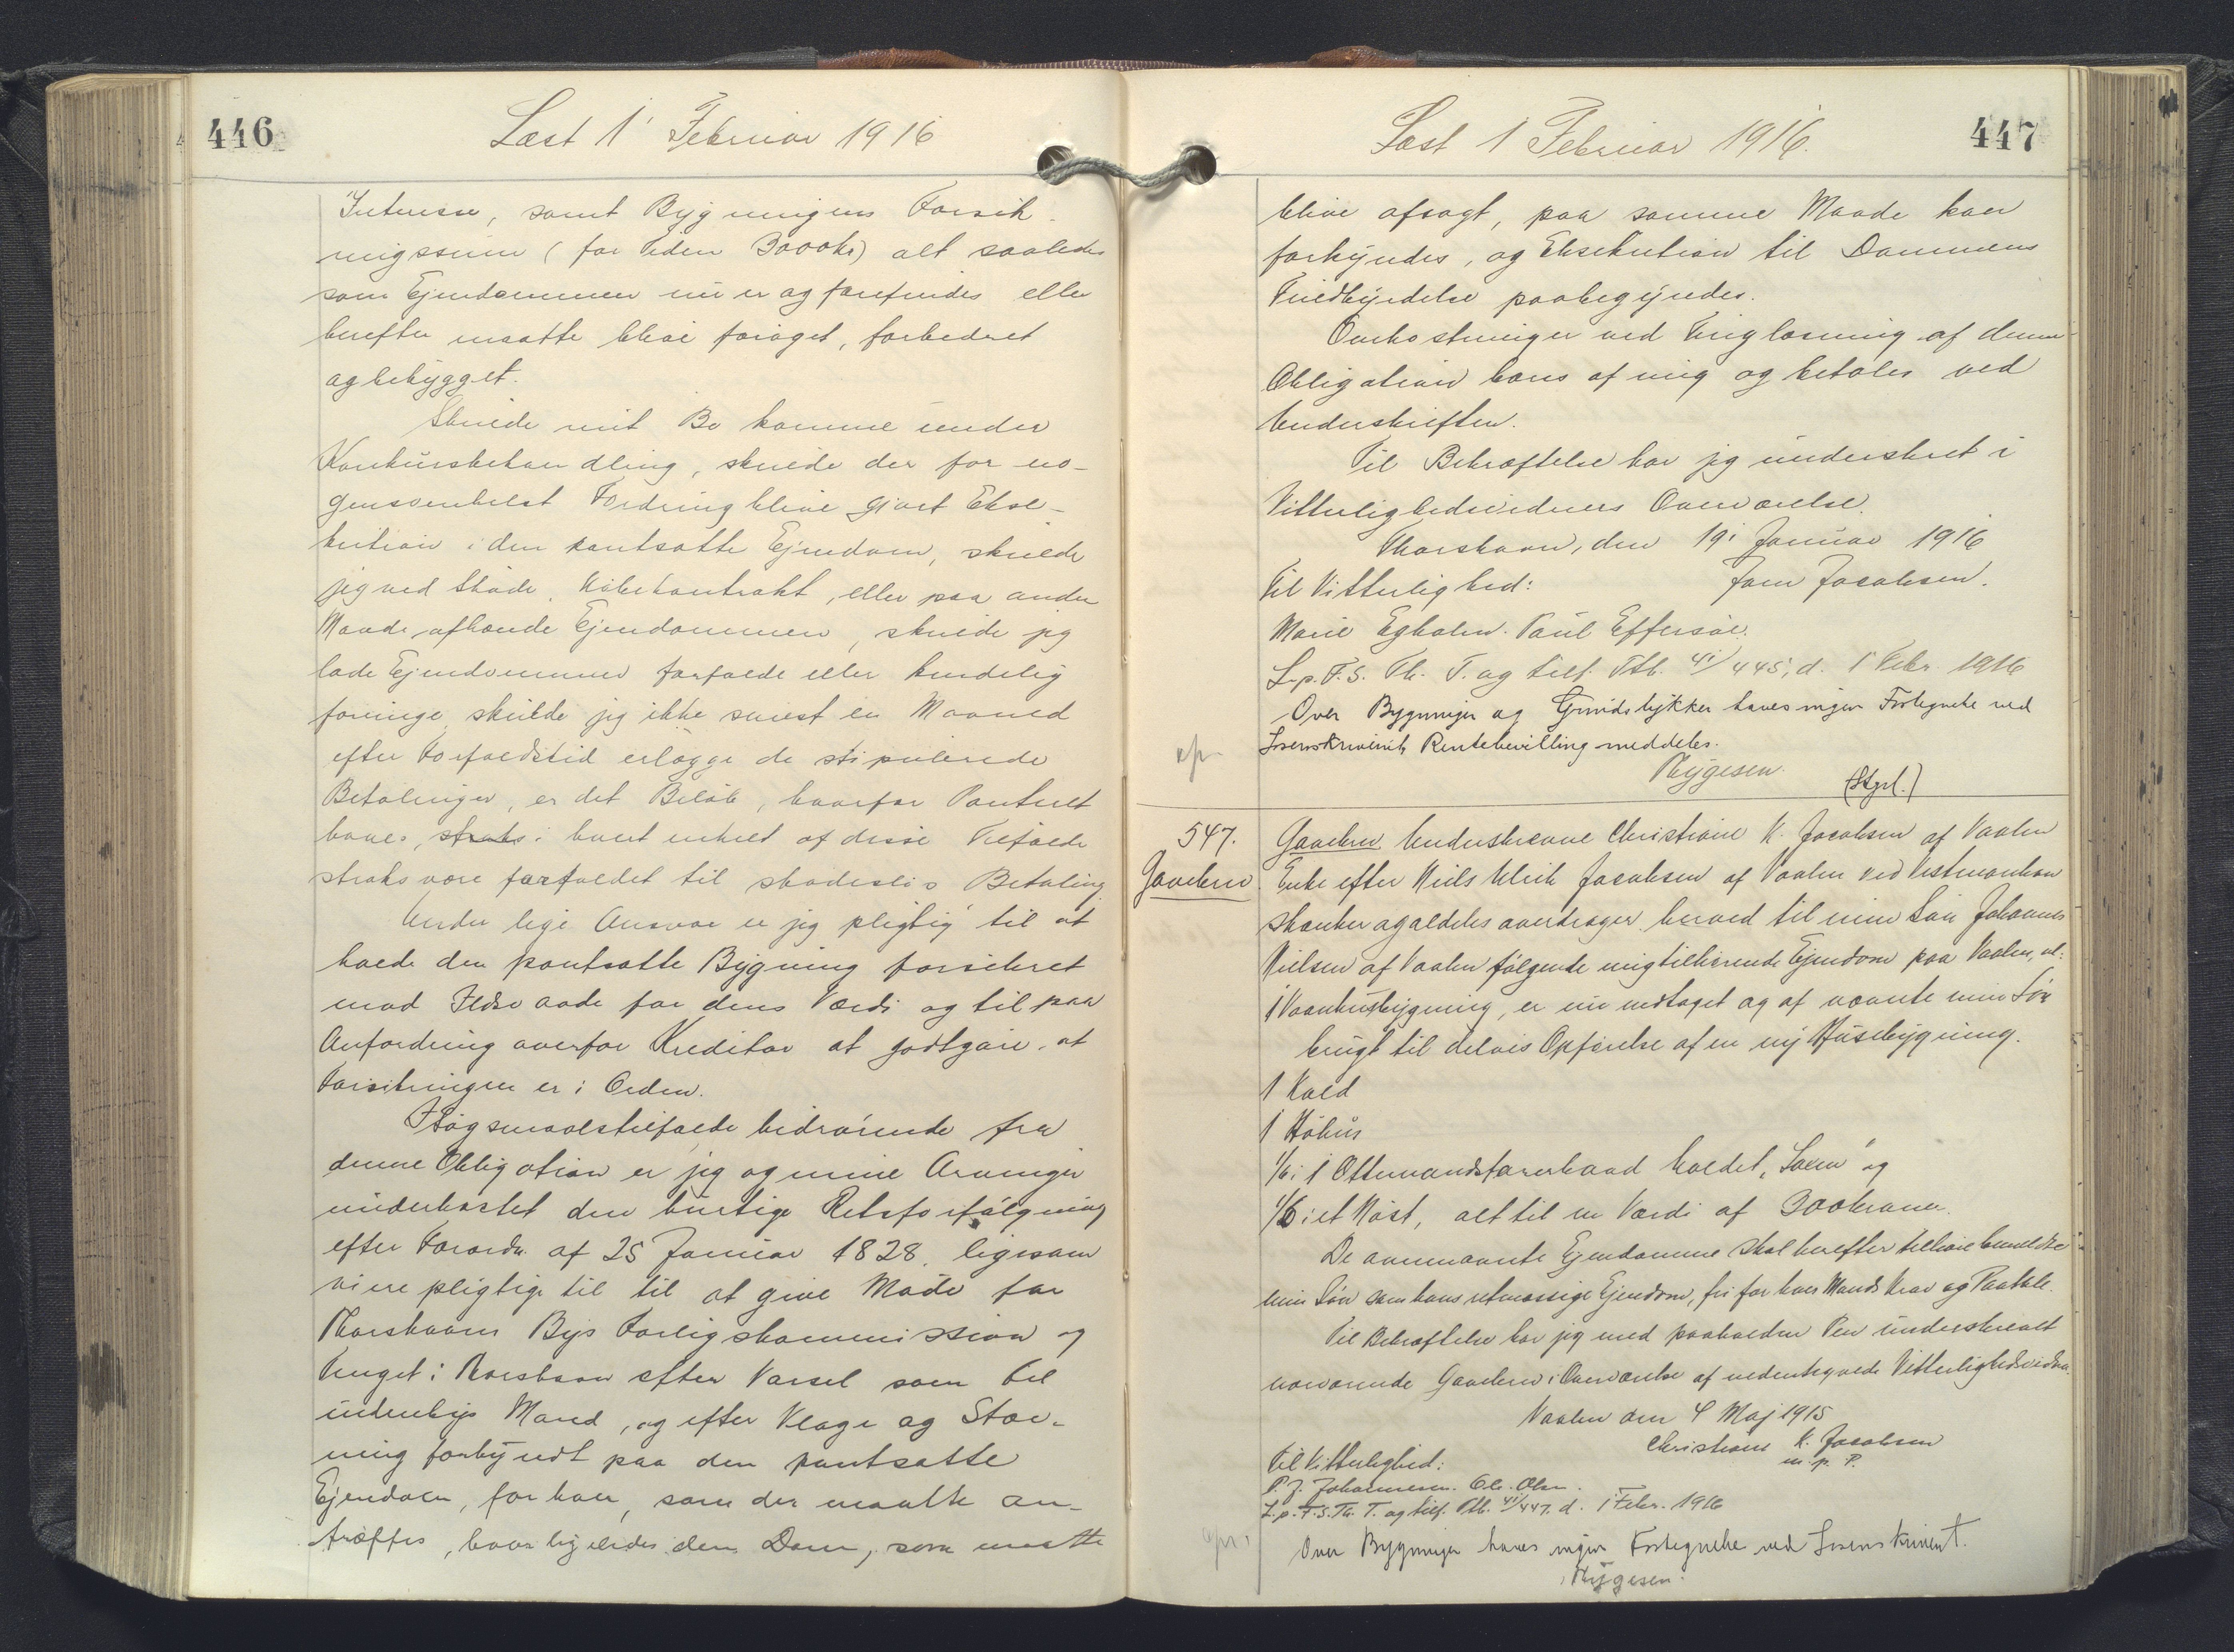 446
Læst 1 Februar 1916
Interesse, samt Bygningens Forsik-
ringssum (for Tiden 3000 Kr) alt saaledes
som Ejendommen nu er og forefindes eller
herefter maatte blive forøget, forbedret
og bebygget.
Skulde mit Bo komme under
Konkursbehandling, skulde der for no-
gensomhelst Fordring blive gjort Ekse-
kution i den pantsatte Ejendom, skulde
jeg ved Skøde, Købekontrakt, eller paa anden
Maade afhænde Ejendommen, skulde jeg
lade Ejendommen forfalde eller kendelig
foringe, skulde jeg ikke senest en Maaned
efter Forfaldstid erlægge de stipulerede
Betalinger, er det Beløb, hvorfor Pantset
haves, straks i hvert enkelt af disse Tilfælde
straks være forfaldet til skadesløs Betaling
Under lige Ansvar er jeg pligtig til at
holde den pantsatte Bygning forsikret
mod Ildsvaade for dens Værdi og til paa
Anfordring overfor Kreditor at godtgøre, at
Forsikringen er i Orden.
I Søgsmaalstilfælde hidrørende fra
denne Obligation er jeg og mine Arvinger
underkastet den hurtige Retsforfølgning
efter Forordn. af 25 Januar 1828, ligesom
vi ere pligtige til til at give Møde for
Thorshavns Bys Forligskommission og
Tinget i Thorshavn efter Varsel som til
indenbys Mand, og efter Klage og Stæv-
ning forkyndt paa den pantsatte
Ejendom, for hver, som der maatte an-
træffes, hvor ligeledes den Dom, som maatte
447
Læst 1 Februar 1916.
blive afsagt, paa samme Maade kan
forkyndes, og Eksekution til Dommens
Fuldbyrdelse paabegyndes.
Omkostninger ved Tinglæsning af denne
Obligation bæres af mig og betales ved
Underskriften.
Til Bekræftelse har jeg underskret i
Vitterlighedsvidners Overværelse.
Thorshavn, den 19 Januar 1916
Til Vitterlighed: Joen Jacobsen.
Marie Egholm. Paul Effersøe.
L. p. F. S. Th. T. og tilf. Ptb. 41/445, d. 1 Febr. 1916
Over Bygninger og Grundstykker haves ingen Fortegnelse ved
Sorenskriveriet, Rentebevilling meddeles.
Thygesen. (Stpl.)
547.
Gavebrev
Gavebrev Underskrevne Christiane K. Jacobsen af Vaalen
Enke efter Niels Ulrik Jacobsen af Vaalen ved Vestmanhavn
skænker og aldeles overdrager herved til min Søn Johannes
Nielsen af Vaalen følgende mig tilhørende Ejendom paa Vaalen, al:
1 Vaanhusbygning, er nu nedtaget og af nævnte min Søn
brugt til delvis Opførelse af en ny Husebygning.
1 Kold
1 Høhus
1/6 i 1 Ottemandsfarerbaad kaldet, "Svein" og
1/6 i et Nøst, alt til en Værdi af 300 kroner.
De ovennævnte Ejendomme skal herefter tilhøre bemeldte
min Søn som hans retmæssige Ejendom, fri for hver Mands Krav og Paatale.
Til Bekræftelse har jeg med paaholden Pen underskrevet
nærværende Gavebrev i Overværelse af nedentegnede Vitterlighedsvidner.
Vaalen den 4 Maj 1915
Christiane K. Jacobsen
m. p. P.
Til Vitterlighed:
P. J. Johannesen. Ole Olsen.
L. p. F. S. Th. T. og tilf. Ptb. 41/447. d. 1 Febr. 1916
Over Bygninger haves ingen Fortegnelse ved Sorenskriveriet.
Thygesen.